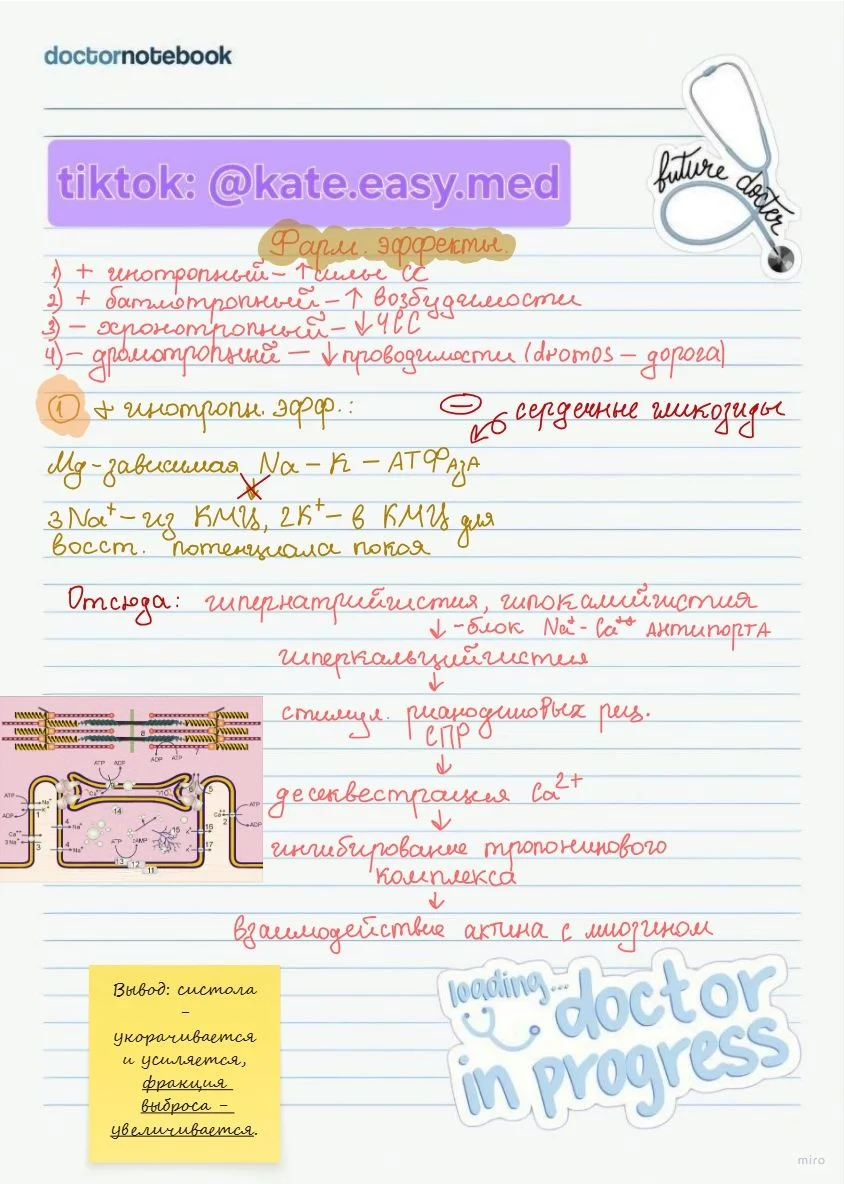 doctornotebook
tiktok: @kate.easy.med
future doctor
Фарм. эффекты.
1) + инотропный – ↑ силы СС
2) + батмотропный – ↑ возбудимости
3) – хронотропный – ↓ ЧСС
4) – дромотропный – ↓ проводимости (dromos – дорога)
① + инотропн. эфф.:
⊖ сердечные гликозиды
Mg-зависимая Na – K – АТФаза
3Na⁺ – из КМЦ, 2K⁺ – в КМЦ для
восст. потенциала покоя
Отсюда: гипернатрийгистия, гипокалийгистия
↓ – блок Na⁺ - Ca⁺⁺ антипорта
гиперкальцийгистия
↓
стимул. рианодиновых рец.
СПР
↓
десеквестрация Ca²⁺
↓
ингибирование тропонинового
комплекса
↓
взаимодействие актина с миозином
ATP
ADP
ADP
ATP
8
7
9
10
6
5
14
ATP
ADP
Na⁺
K⁺
1
Ca⁺⁺
3Na⁺
3
4
Na⁺
4
Na⁺
ATP
cAMP
15
13
12
11
K⁺
16
K⁺
17
Ca⁺⁺
2
ATP
ADP
Вывод: систола
–
укорачивается
и усиляется,
фракция
выброса –
увеличивается.
loading...
doctor
in progress
miro